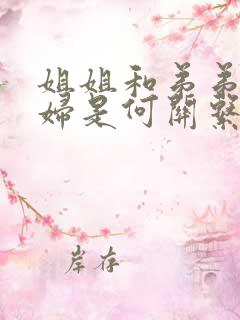 姐姐和弟弟
婦是何關繫
岸存